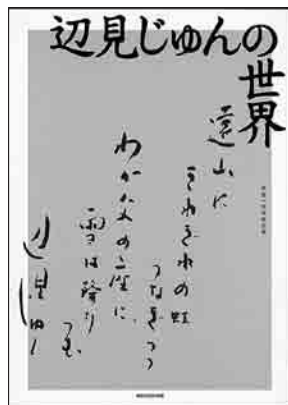 辺見じゅんの
世界
遠山に
きれぎれの虹
つなぎつつ
わが父の座に
雪は降り
つむ
辺見じゅん